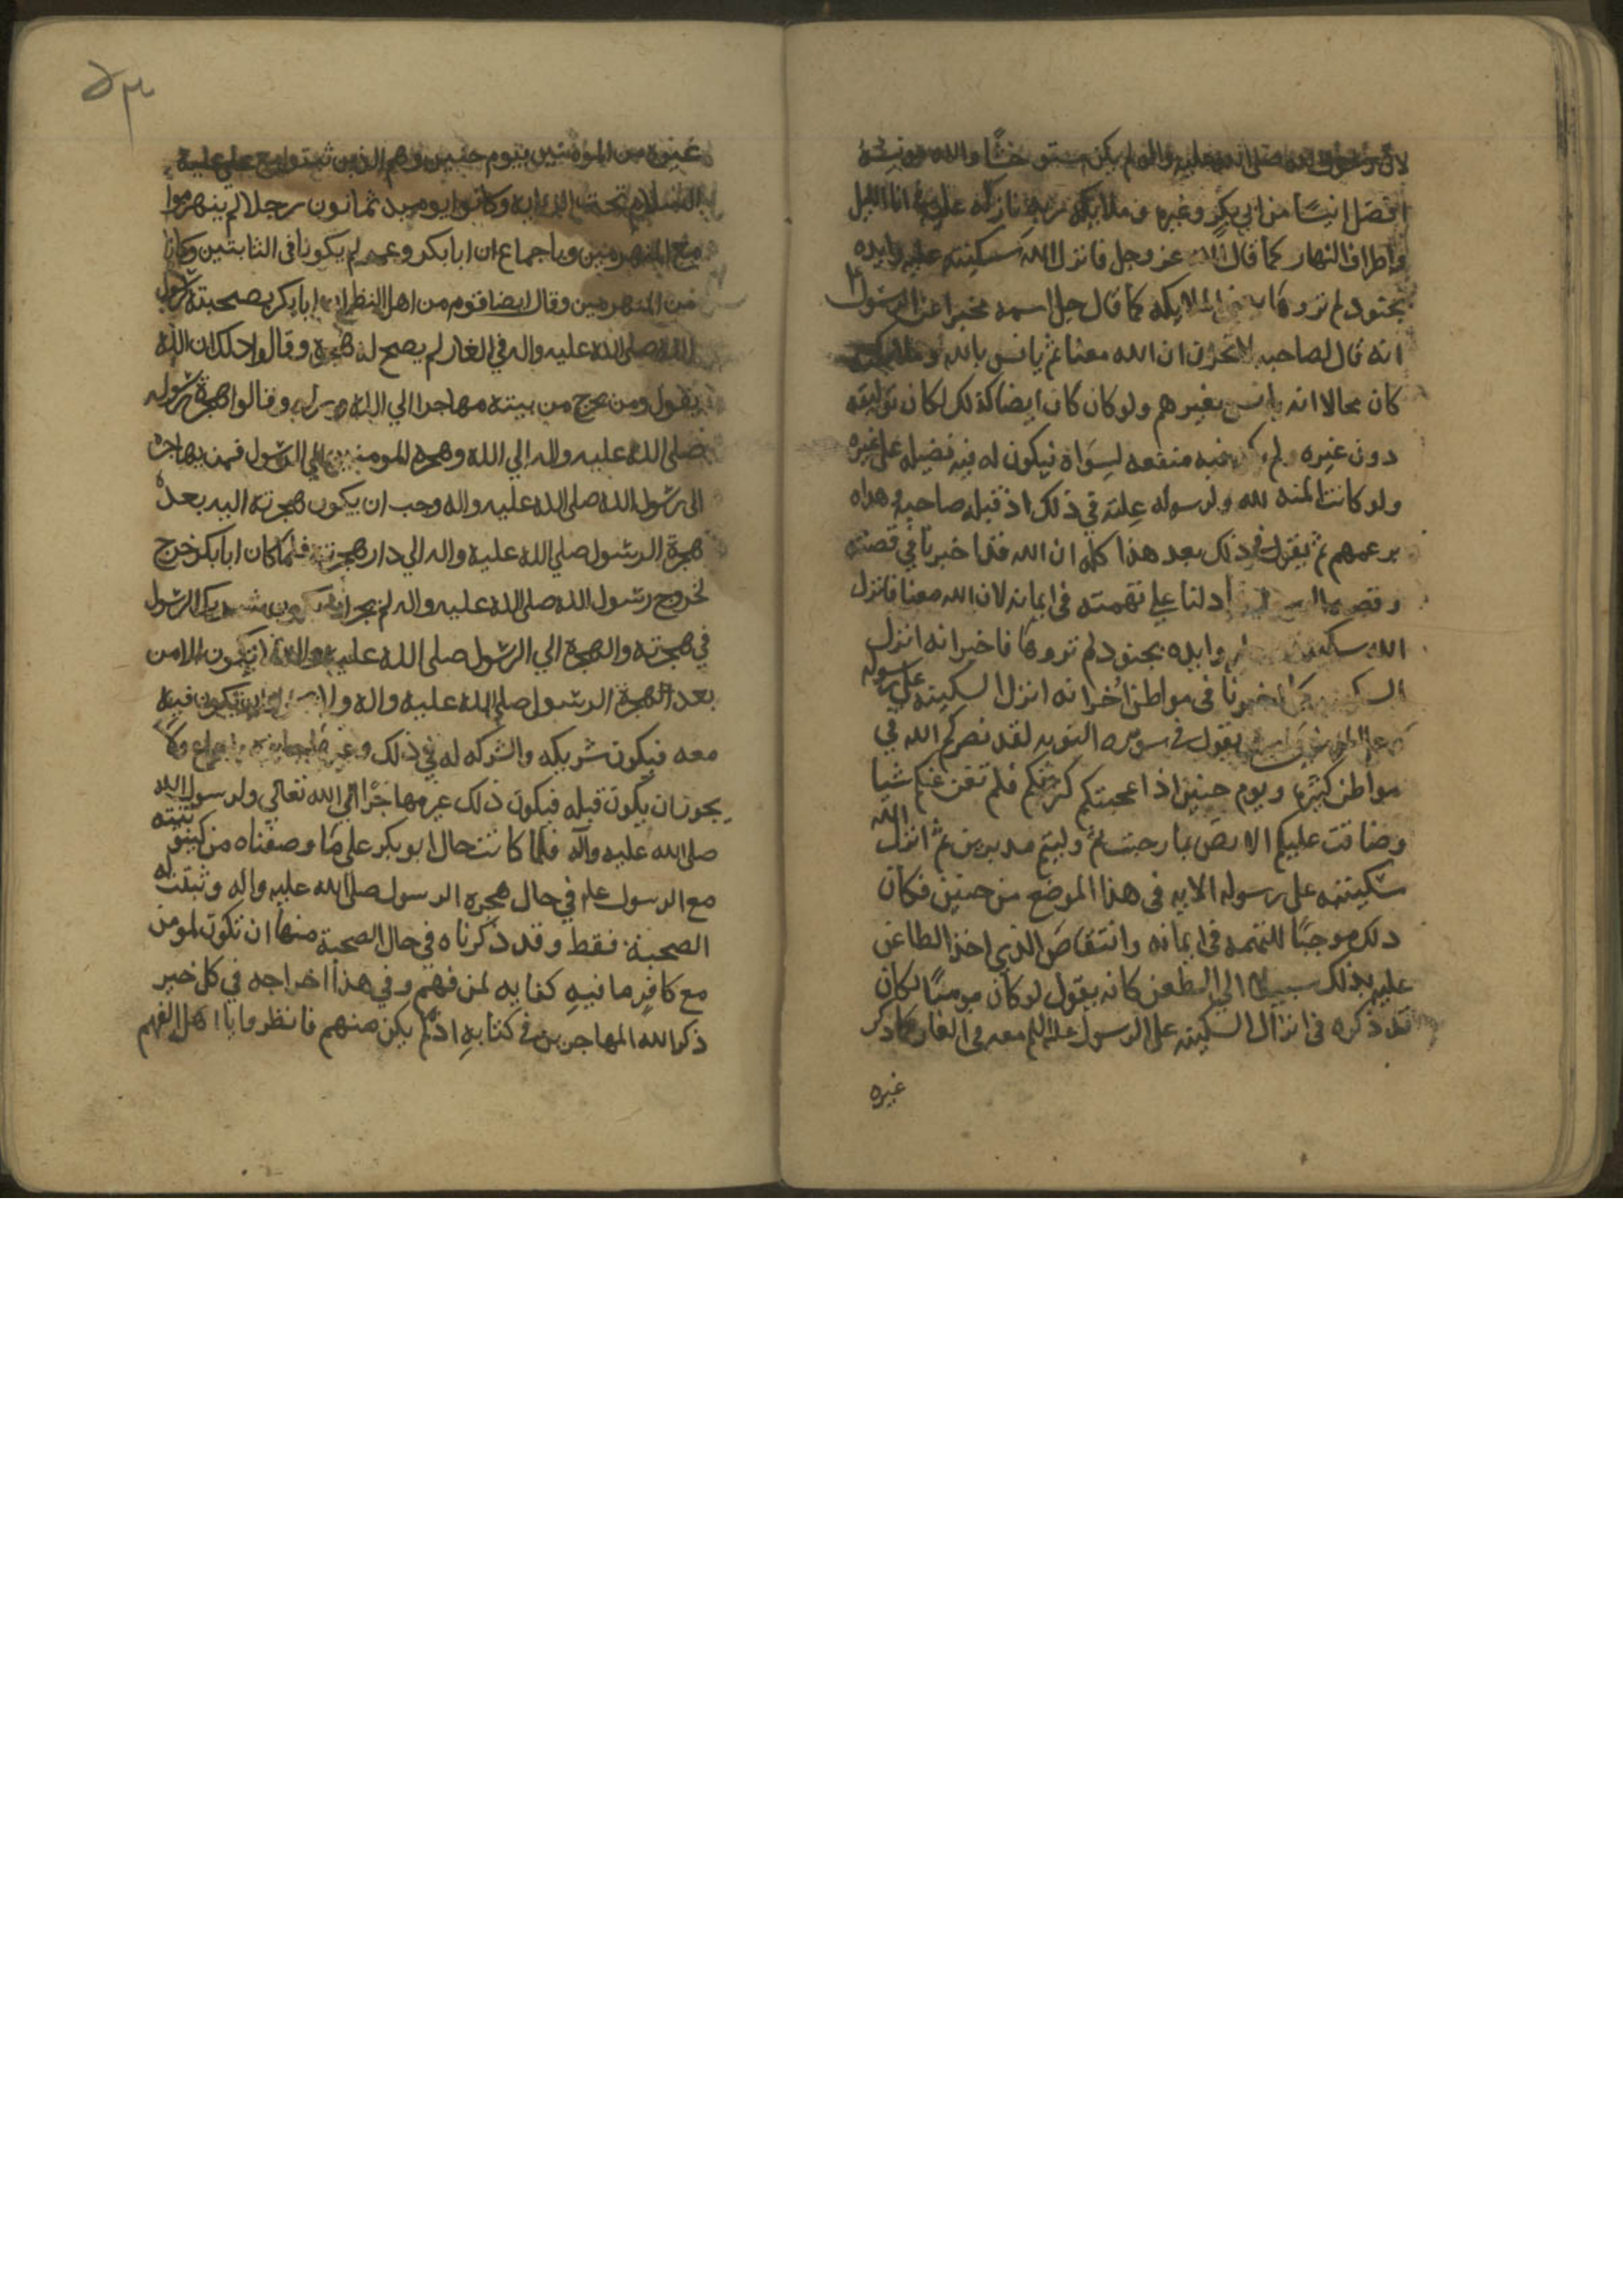 لان رسول الله صلى الله عليه واله لم يكن مستوحشا والله مونسه
افضل انيسًا من ابي بكر وغيره وملايكة ربه نازلة عليه انا الليل
واطراف النهار كما قال الله عز وجل فانزل الله سكينته عليه وايده
بجنود لم تروها الملايكه كما قال جل اسمه مخبرا عن الرسول
انه قال لصاحبه لا تحزن ان الله معنا ثم يانس بالله
كان محالا انه يانس بغيرهم ولو كان كان ايضا كذلك لكان
دون غيره ولم فيه منفعه لسواه فيكون له فيه فضيله على غيره
ولو كانت المنه لله ولرسوله عليه في ذلك اذ قبله صاحبه وهداه
بزعمهم ثم يقول في ذلك بعد هذا كله ان الله قد اخبرنا في قصته
ادلنا على تهمته في ايمانه لان الله معنا فانزل
الله سكينته وايده بجنود لم تروها فاخبر انه انزل
اخبرنا في مواطن اخر انه انزل السكينه على رسوله
يقول في سوره التوبه لقد نصركم الله في
مواطن كثيره ويوم حنين اذ اعجبتكم كثرتكم فلم تغن عنكم شيا
وضاقت عليكم الارض بما رحبت ثم وليتم مدبرين ثم انزل الله
سكينته على رسوله الايه في هذا الموضع من حنين فكان
ذلك موجبًا للتهمه في ايمانه وانتقاص الذي اخذ الطاعن
عليه بذلك سبيلا الي الطعن كانه يقول لو كان مومنًا لكان
قد ذكره في انزال السكينه على الرسول معه في الغار كما ذكر
غيره
٥٣
غيره من المومنين بيوم حنين وهم الذين ثبتوا مع علي عليه
السلام تحت الرايه وكانوا يوميذ ثمانون رجلا لم ينهزموا
مع المنهزمين وباجماع ان ابابكر وعمر لم يكونا في الثابتين وكانا
من المنهزمين وقال ايضا قوم من اهل النظر ان ابابكر بصحبته رسول
الله صلى الله عليه واله في الغار لم يصح له هجرة وقالوا ذلك ان الله
يقول ومن يخرج من بيته مهاجرا الي الله ورسوله وقالوا هجرة رسول
صلى الله عليه واله الي الله وهجرة المومنين الي الرسول فمن يهاجر
الى رسول الله صلى الله عليه واله وجب ان يكون هجرته اليه بعد
هجرة الرسول صلي الله عليه واله الي دار هجرته فلما كان ابابكر خرج
لخروج رسول الله صلى الله عليه واله لم يجز ان يكون شريك الرسول
في هجرته والهجرة الي الرسول صلى الله عليه واله لا تكون الا من
بعد الهجرة الرسول صلى الله عليه واله ولا يكون فيه
معه فيكون شريكه والشركه له في ذلك وغير
يجوز ان يكون قبله فيكون ذلك غير مهاجرًا الي الله تعالي ولرسول الله
صلى الله عليه وآله فلما كانت حال ابو بكر على ما وصفناه من كينونته
مع الرسول في حال هجره الرسول صلى الله عليه واله وثبتت له
الصحبة فقط وقد ذكرناه في حال الصحبة منها ان تكون لمومن
مع كافر ما فيه كفايه لمن فهم وفي هذا اخراجه في كل خبر
ذكر الله المهاجرين في كتابه اذ لم يكن منهم فانظروا يا اهل الفهم